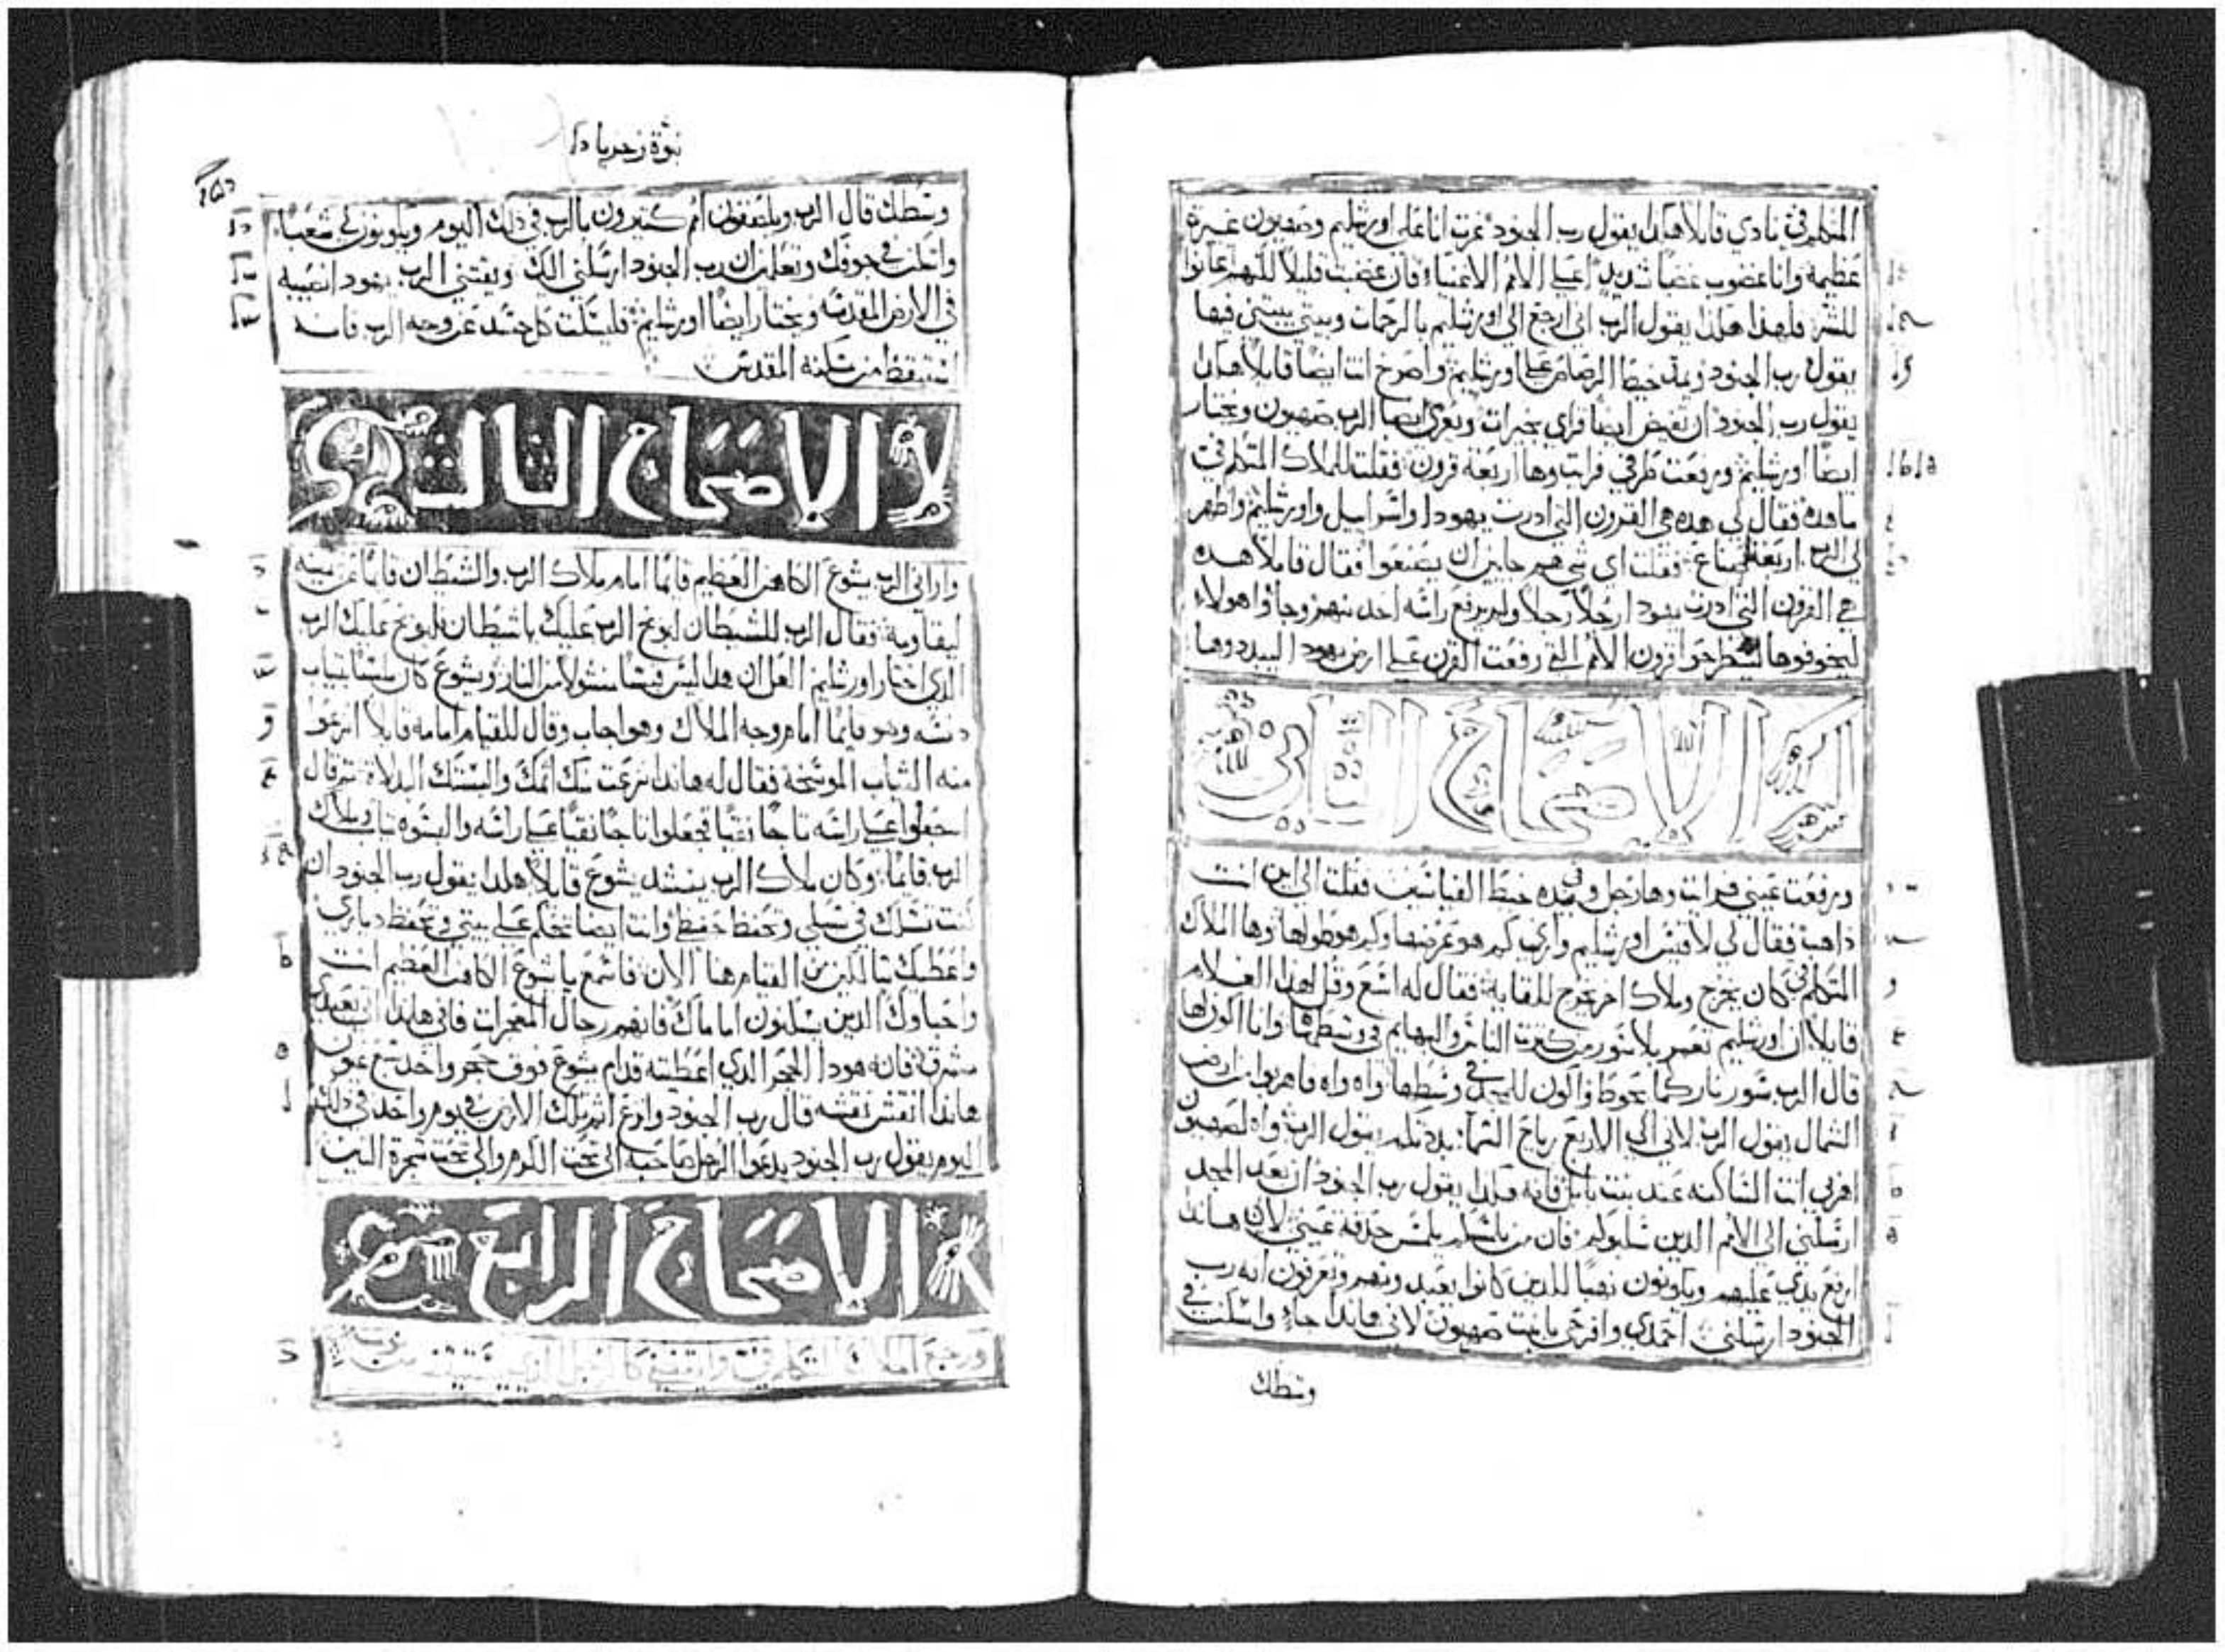 المتكلم في نادي قايلاً هكذا يقول رب الجنود غرت انا على اورشليم وصهيون غيرة
عظيمة وانا غضوب غضباً شديداً علي الامم الاغنياء فان غضبت قليلاً لكنهم عانوا
للشر فلهذا هكذا يقول الرب اني ارجع الي اورشليم بالرحمات وبيتي يبتني فيها
يقول رب الجنود ويمد خيط الرصاص علي اورشليم واصرخ انت ايضاً قايلاً هكذا
يقول رب الجنود ان تفيض ايضاً قراي بخيرات ويعزي ايضاً الرب صهيون ويختار
ايضاً اورشليم ورفعت طرفي فرايت وها اربعة قرون فقلت للملاك المتكلم في
ما هذه فقال لي هذه هي القرون التي ادرت يهودا واسراييل واورشليم واظهر
لي الرب اربعة صناع فقلت اي شي هم جايين ان يصنعوا فقال قايلاً هذه
هي القرون التي ادرت يهودا رجلاً رجلاً ولم يرفع راسه احد منهم وجاوا هولاء
ليخوفوها ليطرحوا قرون الامم التي رفعت القرن علي ارض يهودا ليبددوها
الاصحاح الثاني
ورفعت عيني فرايت وها رجل وفي يده خيط القياسين فقلت الي اين انت
ذاهب فقال لي لاقيس اورشليم واري كم هو عرضها وكم هو طولها وها الملاك
المتكلم في كان يخرج وملاك اخر يخرج للقايه فقال له اسع وقل لهذا الغلام
قايلاً ان اورشليم تعمر بلا سور من كثرت الناس والبهايم في وسطها وانا اكون لها
قال الرب سور نار كما يحوط واكون للمجد في وسطها واه واه فاهربوا من ارض
الشمال يقول الرب لاني الي الاربع رياح السما بددتكم يقول الرب واه لصهيون
اهربي انت الساكنه عند بنت بابل فانه هكذا يقول رب الجنود ان بعد المجد
ارسلني الي الامم الذين سلبوكم فان من يمسكم يلمس حدقة عيني لان هانذا
ارفع يدي عليهم ويكونون نهباً للذين كانوا يعبدونهم وتعرفون انه رب
الجنود ارسلني احمدي وافرحي يا بنت صهيون لاني هانذا جاءٍ واسكن في
وسطك
نبوة زخريا
وسطك قال الرب ويلتصقون امم كثيرون بالرب في ذلك اليوم ويكونون لي شعباً
واسكن في جوفك وتعلمين ان رب الجنود ارسلني اليك ويقتني الرب يهودا نصيبه
في الارض المقدسه ويختار ايضاً اورشليم فليسكت كل جسد عن وجه الرب فانه
استيقظ من سكنه المقدس
الاصحاح الثالث
واراني الرب يشوع الكاهن العظيم قايماً امام ملاك الرب والشيطان قايماً عن يمينه
ليقاومه فقال الرب للشيطان ليوبخ الرب عليك يا شيطان ليوبخ عليك الرب
الذي اختار اورشليم العل ان هذا ليس قبساً منشولاً من النار ويشوع كان ملبساً بثياب
دنسه وهو قايماً امام وجه الملاك وهو اجاب وقال للقيام امامه قايلاً انزعوا
منه الثياب الموسخة فقال له هانذا نزعت منك اثمك والبستك البدلات ثم قال
اجعلوا علي راسه تاجاً نقياً فجعلوا تاجاً نقياً علي راسه والبسوه ثياب وملاك
الرب قايماً وكان ملاك الرب ينشد يشوع قايلاً هكذا يقول رب الجنود ان
كنت تسلك في سبلي وتحفظ حفظي وانت ايضاً تحكم علي بيتي وتحفظ دياري
واعطيك سالكين من القيام هنا الان فاسمع يا يشوع الكاهن العظيم انت
واحباوك الذين يسكنون امامك فانهم رجال المعجزات فاني هانذا اتي بعبدي
مشرق فانه هوذا الحجر الذي اعطيته قدام يشوع فوق حجر واحد سبع عيون
هانذا انقش نقشه قال رب الجنود وانزع اثم تلك الارض في يوم واحد في ذلك
اليوم يقول رب الجنود يدعوا الرجل صاحبه الي تحت الكرم والي تحت شجرة التين
الاصحاح الرابع
ورجع الملاك المتكلم في وايقظني كالرجل الذي يستيقظ من نومه